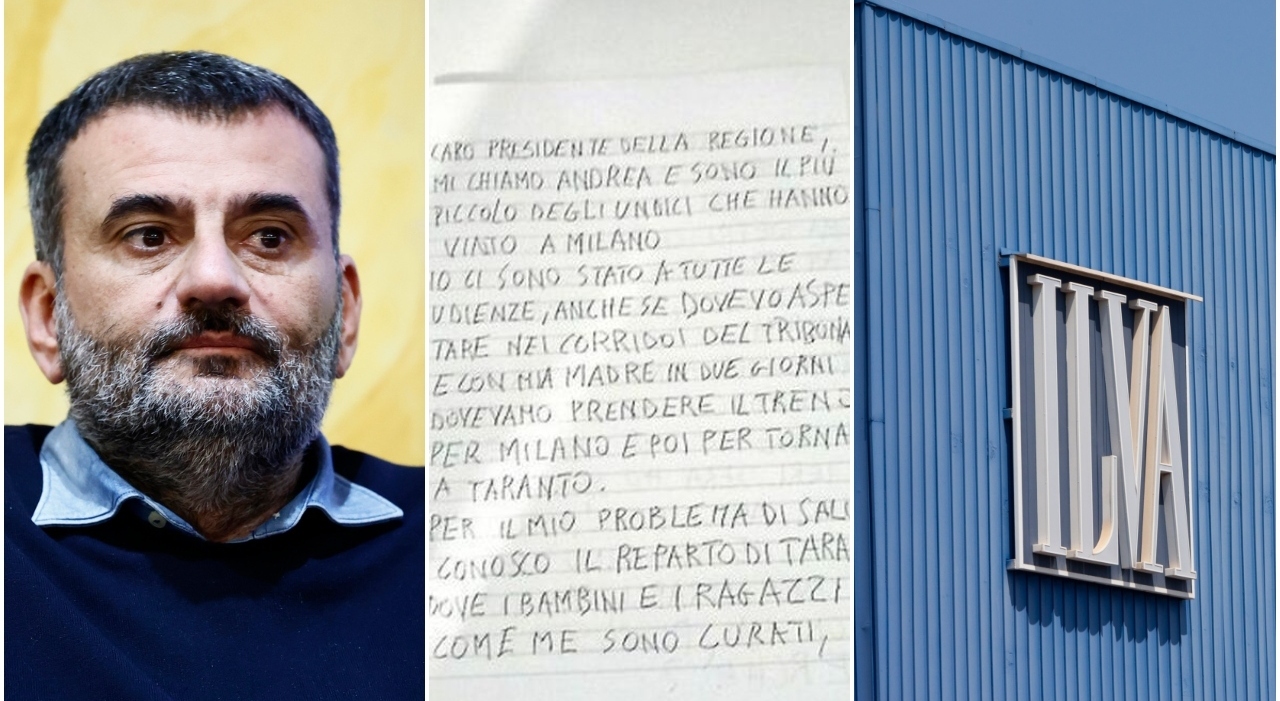 CARO PRESIDENTE DELLA REGIONE,
MI CHIAMO ANDREA E SONO IL PIÙ
PICCOLO DEGLI UNDICI CHE HANNO
VINTO A MILANO
IO CI SONO STATO A TUTTE LE
UDIENZE, ANCHE SE DOVEVO ASPE
TARE NEI CORRIDOI DEL TRIBUNA
E CON MIA MADRE IN DUE GIORNI
DOVEVAMO PRENDERE IL TRENO
PER MILANO E POI PER TORNA
A TARANTO.
PER IL MIO PROBLEMA DI SALU
CONOSCO IL REPARTO DI TARA
DOVE I BAMBINI E I RAGAZZI
COME ME SONO CURATI,
ILVA